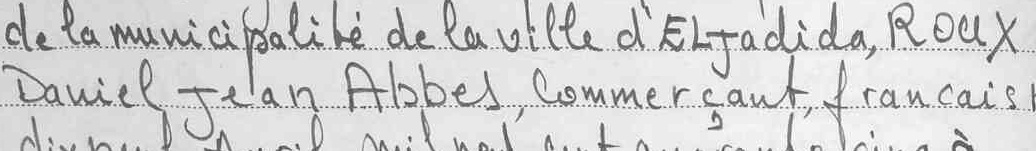 de la municipalité de la ville d'EL Jadida, ROUX
Daniel Jean Abbes, Commerçant, francais